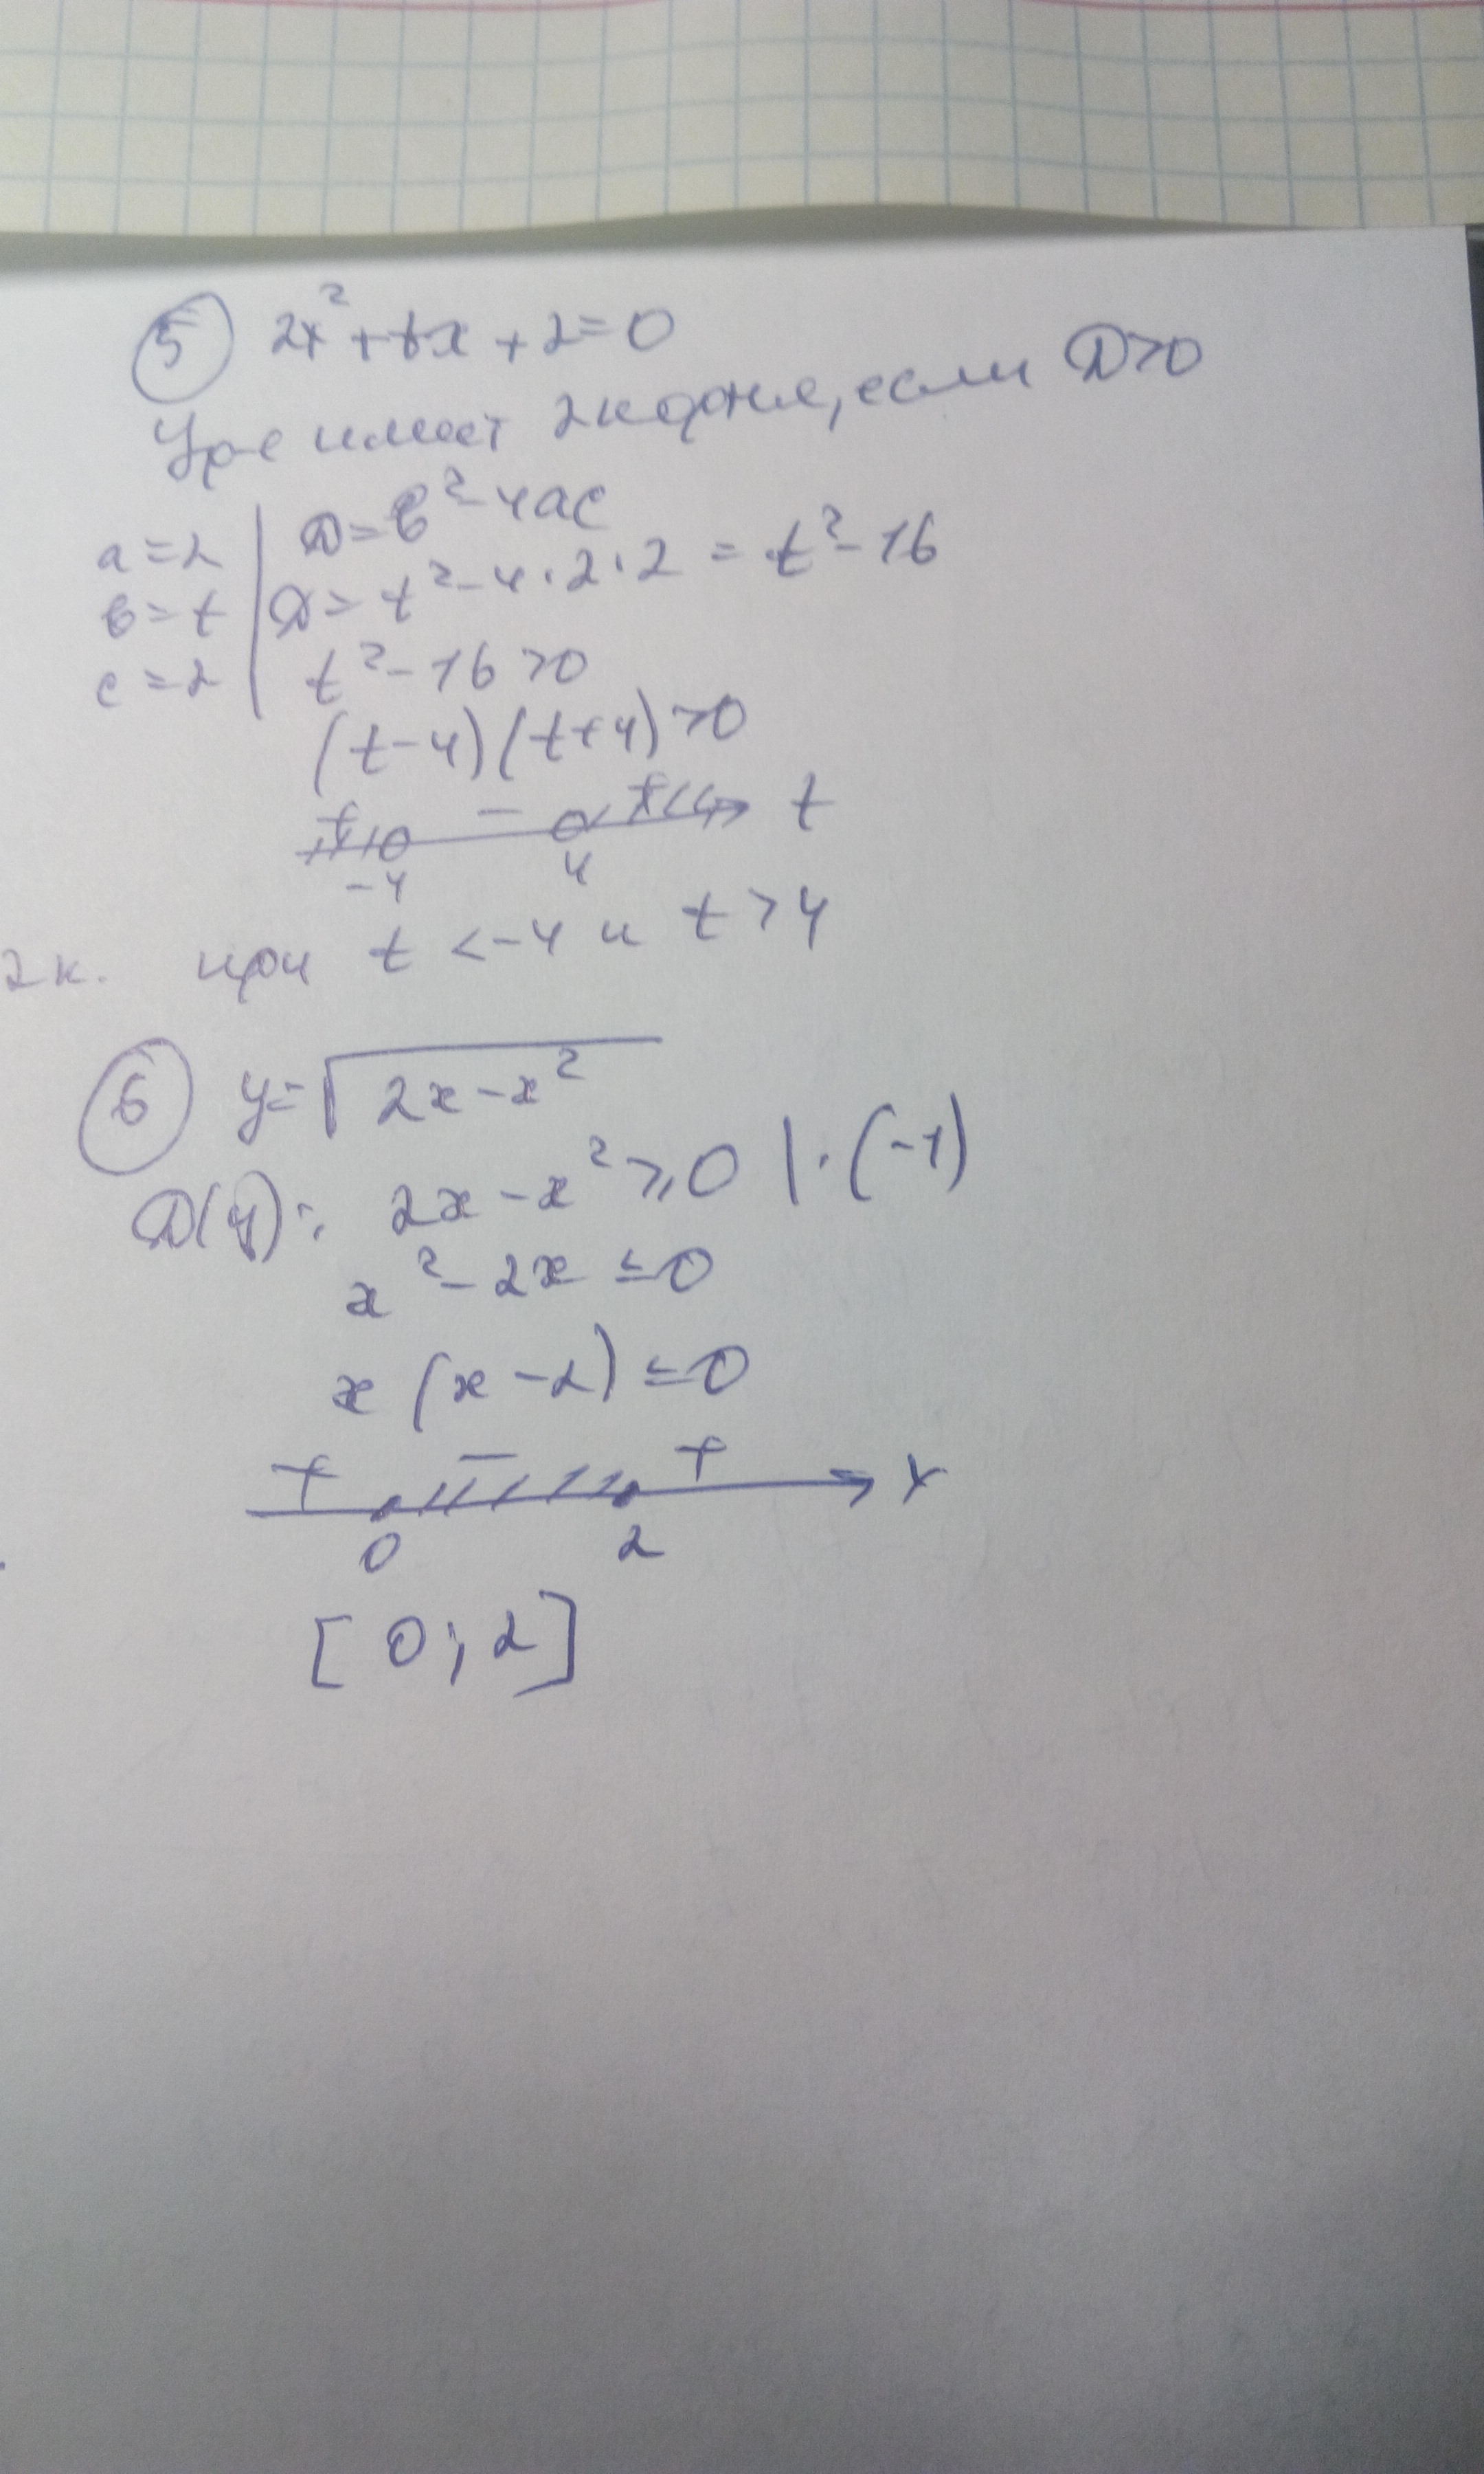 5 2x² + tx + 2 = 0
Ур-е имеет 2 корня, если D>0
a = 2 | D = в² - 4ac
в = t | D = t² - 4·2·2 = t² - 16
c = 2 | t² - 16 >0
(t - 4)(t + 4) >0
+ - + t
-4 4
2 к. при t < -4 и t > 4
6 y = √2x - x²
D(y): 2x - x² ⩾ 0 | · (-1)
x² - 2x ≤ 0
x (x - 2) ≤ 0
+ - + x
0 2
[0; 2]